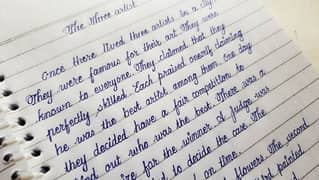 The three artist
Once there lived three artists in a city
They were famous for their art. They were
known to everyone. They claimed that they
perfectly skilled. Each praised oneself claiming
he was the best artist among them. One day
they decided have a fair competition to
out who was the best. There was a
for the winner. A judge was
to decide the case. The
on time.
flowers. The second
painted